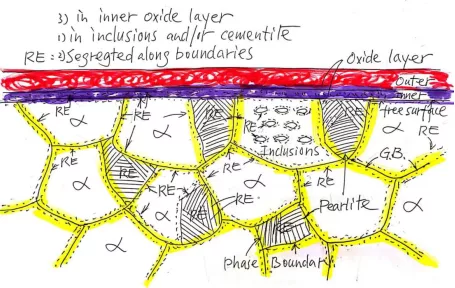 3) in inner oxide layer
1) in inclusions and/or cementite
RE : 2) Segregted along boundaries
Oxide layer
Outer
Inner
free surface
RE
α
RE
RE
RE
α
RE
α
RE
α
Inclusions
G.B.
RE
RE
RE
RE
α
RE
α
RE
α
RE
α
RE
RE
Pearlite
α
RE
Phase Boundari